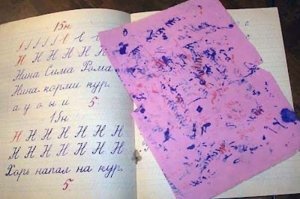 15 н
Н Н Н Н Н Н
Нина Сима Рома
Нина корми кур.
а у о н и 5
15 н
Н Н Н Н Н Н Н
Н Н Н Н Н Н Н
Хорь напал на кур.
5